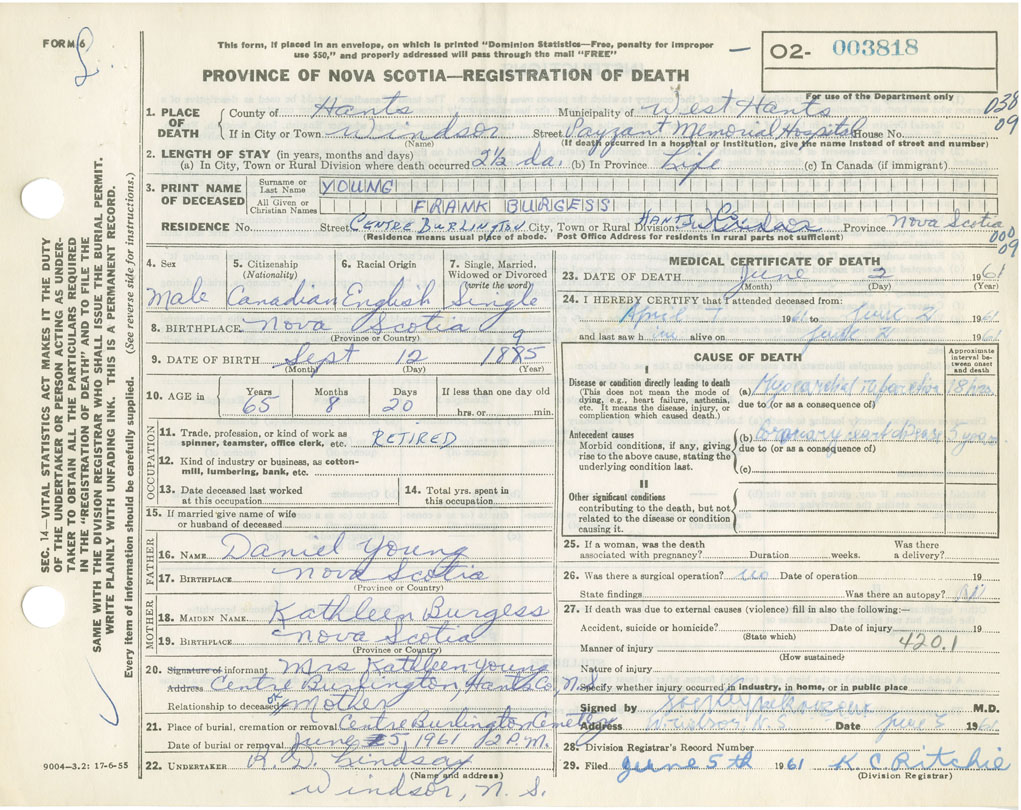 FORM 6
This form, if placed in an envelope, on which is printed "Dominion Statistics—Free, penalty for improper
use $50," and properly addressed will pass through the mail "FREE"
PROVINCE OF NOVA SCOTIA—REGISTRATION OF DEATH
O2- 003818
For use of the Department only
038
09
1. PLACE OF DEATH
County of Hants Municipality of West Hants
If in City or Town Windsor Street Payzant Memorial Hospital House No.
(Name) (If death occurred in a hospital or institution, give the name instead of street and number)
2. LENGTH OF STAY (in years, months and days)
(a) In City, Town or Rural Division where death occurred 2½ da. (b) In Province Life (c) In Canada (if immigrant)
3. PRINT NAME OF DECEASED
Surname or Last Name YOUNG
All Given or Christian Names FRANK BURGESS
RESIDENCE No. Street Centre Burlington City, Town or Rural Division Hants Co Province Nova Scotia
(Residence means usual place of abode. Post Office Address for residents in rural parts not sufficient)
000
09
4. Sex
Male
5. Citizenship
(Nationality)
Canadian
6. Racial Origin
English
7. Single, Married, Widowed or Divorced
(write the word)
Single
8. BIRTHPLACE Nova Scotia
(Province or Country)
9. DATE OF BIRTH Sept 12 1895
(Month) (Day) (Year)
10. AGE in
Years 65 Months 8 Days 20 If less than one day old
hrs. or min.
OCCUPATION
11. Trade, profession, or kind of work as
spinner, teamster, office clerk, etc. RETIRED
12. Kind of industry or business, as cotton-
mill, lumbering, bank, etc.
13. Date deceased last worked
at this occupation
14. Total yrs. spent in
this occupation
15. If married give name of wife
or husband of deceased
FATHER
16. NAME Daniel Young
17. BIRTHPLACE Nova Scotia
(Province or Country)
MOTHER
18. MAIDEN NAME Kathleen Burgess
19. BIRTHPLACE Nova Scotia
(Province or Country)
20. Signature of informant Mrs Kathleen Young
Address Centre Burlington, Hants Co, N.S.
Relationship to deceased Mother
21. Place of burial, cremation or removal Centre Burlington Cemetery
Date of burial or removal June 5 1961 2 P.M.
22. UNDERTAKER R. D. Lindsay
(Name and address)
Windsor, N. S.
9004-3.2: 17-6-55
MEDICAL CERTIFICATE OF DEATH
23. DATE OF DEATH June 2 1961
(Month) (Day) (Year)
24. I HEREBY CERTIFY that I attended deceased from:
April 7 1961 to June 2 1961
and last saw him alive on June 2 1961
CAUSE OF DEATH
Approximate interval between onset and death
I
Disease or condition directly leading to death
(This does not mean the mode of
dying, e.g., heart failure, asthenia,
etc. It means the disease, injury, or
complication which caused death.)
(a) Myocardial infarction 18 hrs
due to (or as a consequence of)
Antecedent causes
Morbid conditions, if any, giving
rise to the above cause, stating the
underlying condition last.
(b) Coronary heart disease 3 years
due to (or as a consequence of)
(c)
II
Other significant conditions
contributing to the death, but not
related to the disease or condition
causing it.
25. If a woman, was the death
associated with pregnancy? Duration weeks. Was there
a delivery?
26. Was there a surgical operation? no Date of operation 19
State findings Was there an autopsy? no
27. If death was due to external causes (violence) fill in also the following:—
Accident, suicide or homicide? Date of injury 19
(State which)
Manner of injury 420.1
(How sustained)
Nature of injury
Specify whether injury occurred in industry, in home, or in public place
Signed by M.D.
Address Windsor, N.S. Date June 5 1961
28. Division Registrar's Record Number
29. Filed June 5th 1961 K. C Ritchie
(Division Registrar)
SEC. 14—VITAL STATISTICS ACT MAKES IT THE DUTY
OF THE UNDERTAKER OR PERSON ACTING AS UNDER-
TAKER TO OBTAIN ALL THE PARTICULARS REQUIRED
IN THE "REGISTRATION OF DEATH" AND TO FILE THE
SAME WITH THE DIVISION REGISTRAR WHO SHALL ISSUE THE BURIAL PERMIT.
WRITE PLAINLY WITH UNFADING INK. THIS IS A PERMANENT RECORD.
Every item of information should be carefully supplied. (See reverse side for instructions.)